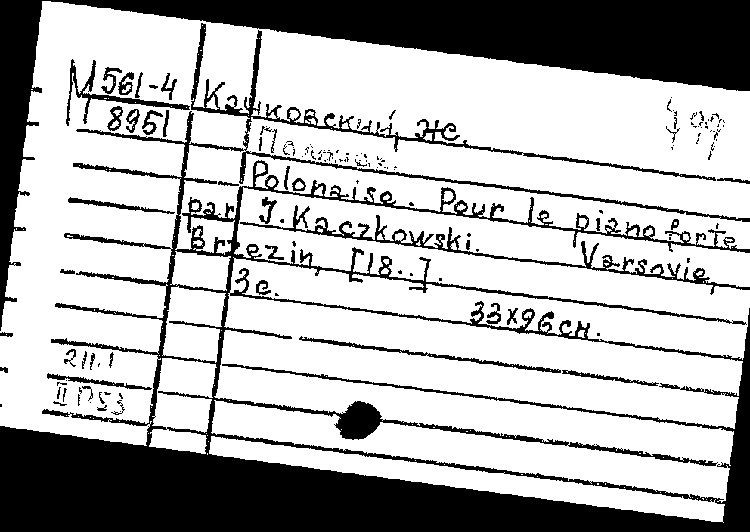 М 561-4
8951
Качковский, Ж.
Полонез.
Polonaise. Pour le piano forte
par J. Kaczkowski. Varsovie,
Brzezin, [18..].
3 с. 33х26 см.
211.1
II